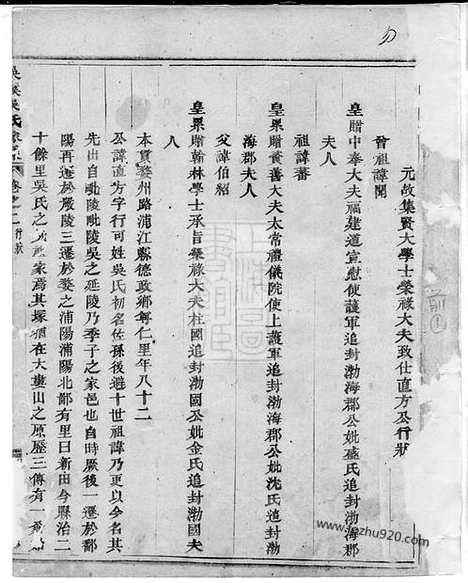 元故集賢大學士榮祿大夫致仕直方公行狀
曾祖諱聞
皇贈中奉大夫福建道宣慰使護軍追封渤海郡公妣盛氏追封渤海郡
夫人
祖諱蕃
皇累贈資善大夫太常禮儀院使上護軍追封渤海郡公妣沈氏追封渤
海郡夫人
父諱伯紹
皇累贈翰林學士承旨榮祿大夫柱國追封渤國公妣金氏追封渤國夫
人
本貫婺州路浦江縣德政鄉尊仁里年八十二
公諱直方字行可姓吳氏初名佐孫後避十世祖諱乃更以今名其
先出自毗陵毗陵吳之延陵乃季子之家邑也自時厥後一遷於鄱
陽再遷於嚴陵三遷於婺之浦陽浦陽北鄙有里曰新田今縣治二
十餘里吳氏之家焉其塚猶在大婁山之原歷三傳有一
吳氏 卷之二 行狀
上海圖書館藏
二前①
jiapu2790.com